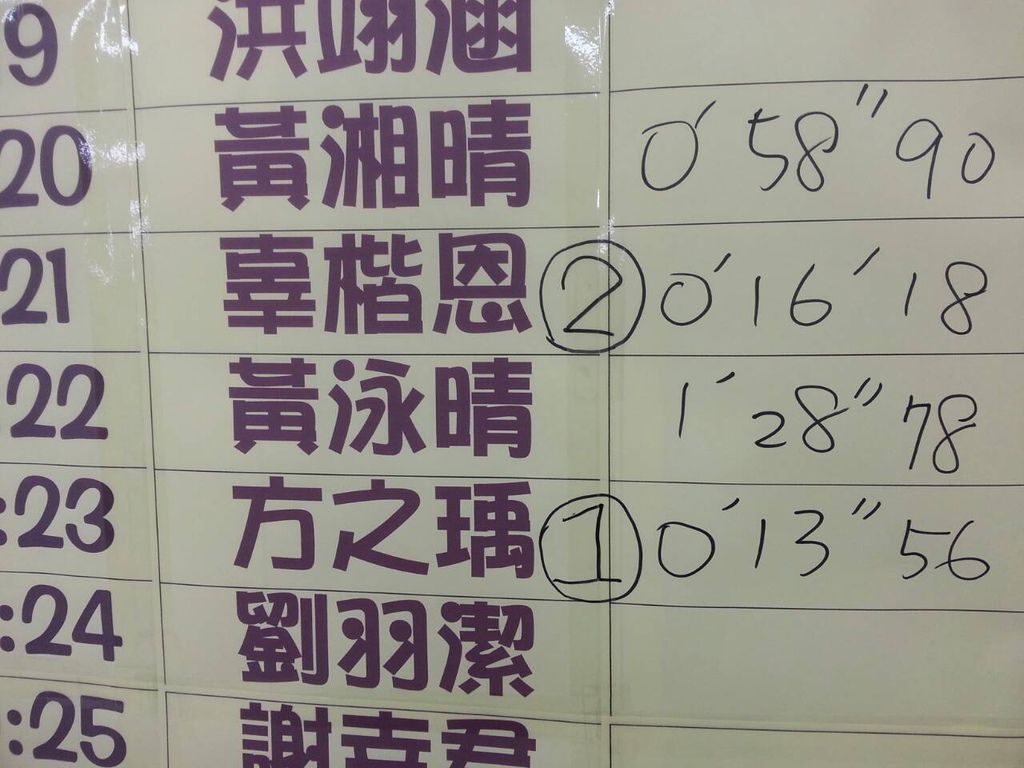 9 洪翊涵
20 黃湘晴 0'58"90
21 辜楷恩 ② 0'16'18
:22 黃泳晴 1'28"78
:23 方之瑀 ① 0'13"56
:24 劉羽潔
:25 謝幸君